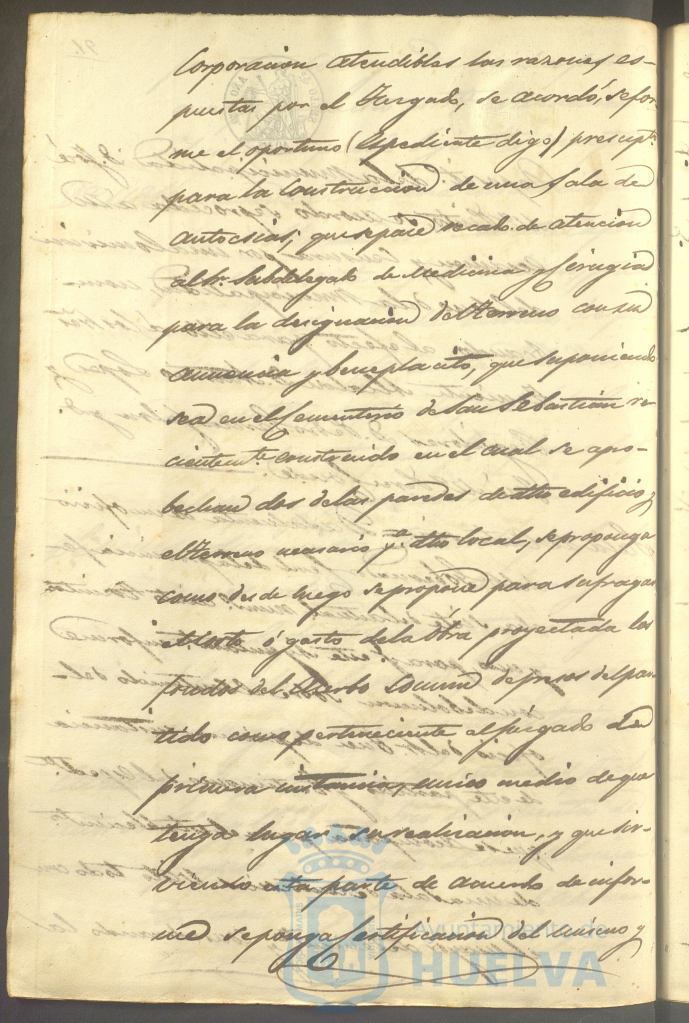 Corporacion atendibles las razones es-
puestas por el Juzgado, se acordó, se for-
me el oportuno (Espediente digo) presup.to
para la construccion de una Sala de
autocsias; que se pase recado de atencion
al Sr. Subdelegado de Medicina y Cirugia
para la designacion del terreno con su
anuencia y beneplacito, que suponiendo
sea en el Cementerio de San Sebastian re-
cientemte. construido en el cual se apro-
bechan dos de las paredes de dho edificio, y
el terreno necesario pa. dho local, se proponga
como desde luego se propone para sufragar
el costo ó gasto de la obra proyectada los
fondos del acerbo comun de presos del par-
tido como perteneciente al juzgado de
primera instancia, unico medio de que
tenga lugar su realizacion, y que sir-
viendo esta parte de acuerdo de infor-
me se ponga certificacion del mismo y
Ayuntamiento de
HUELVA